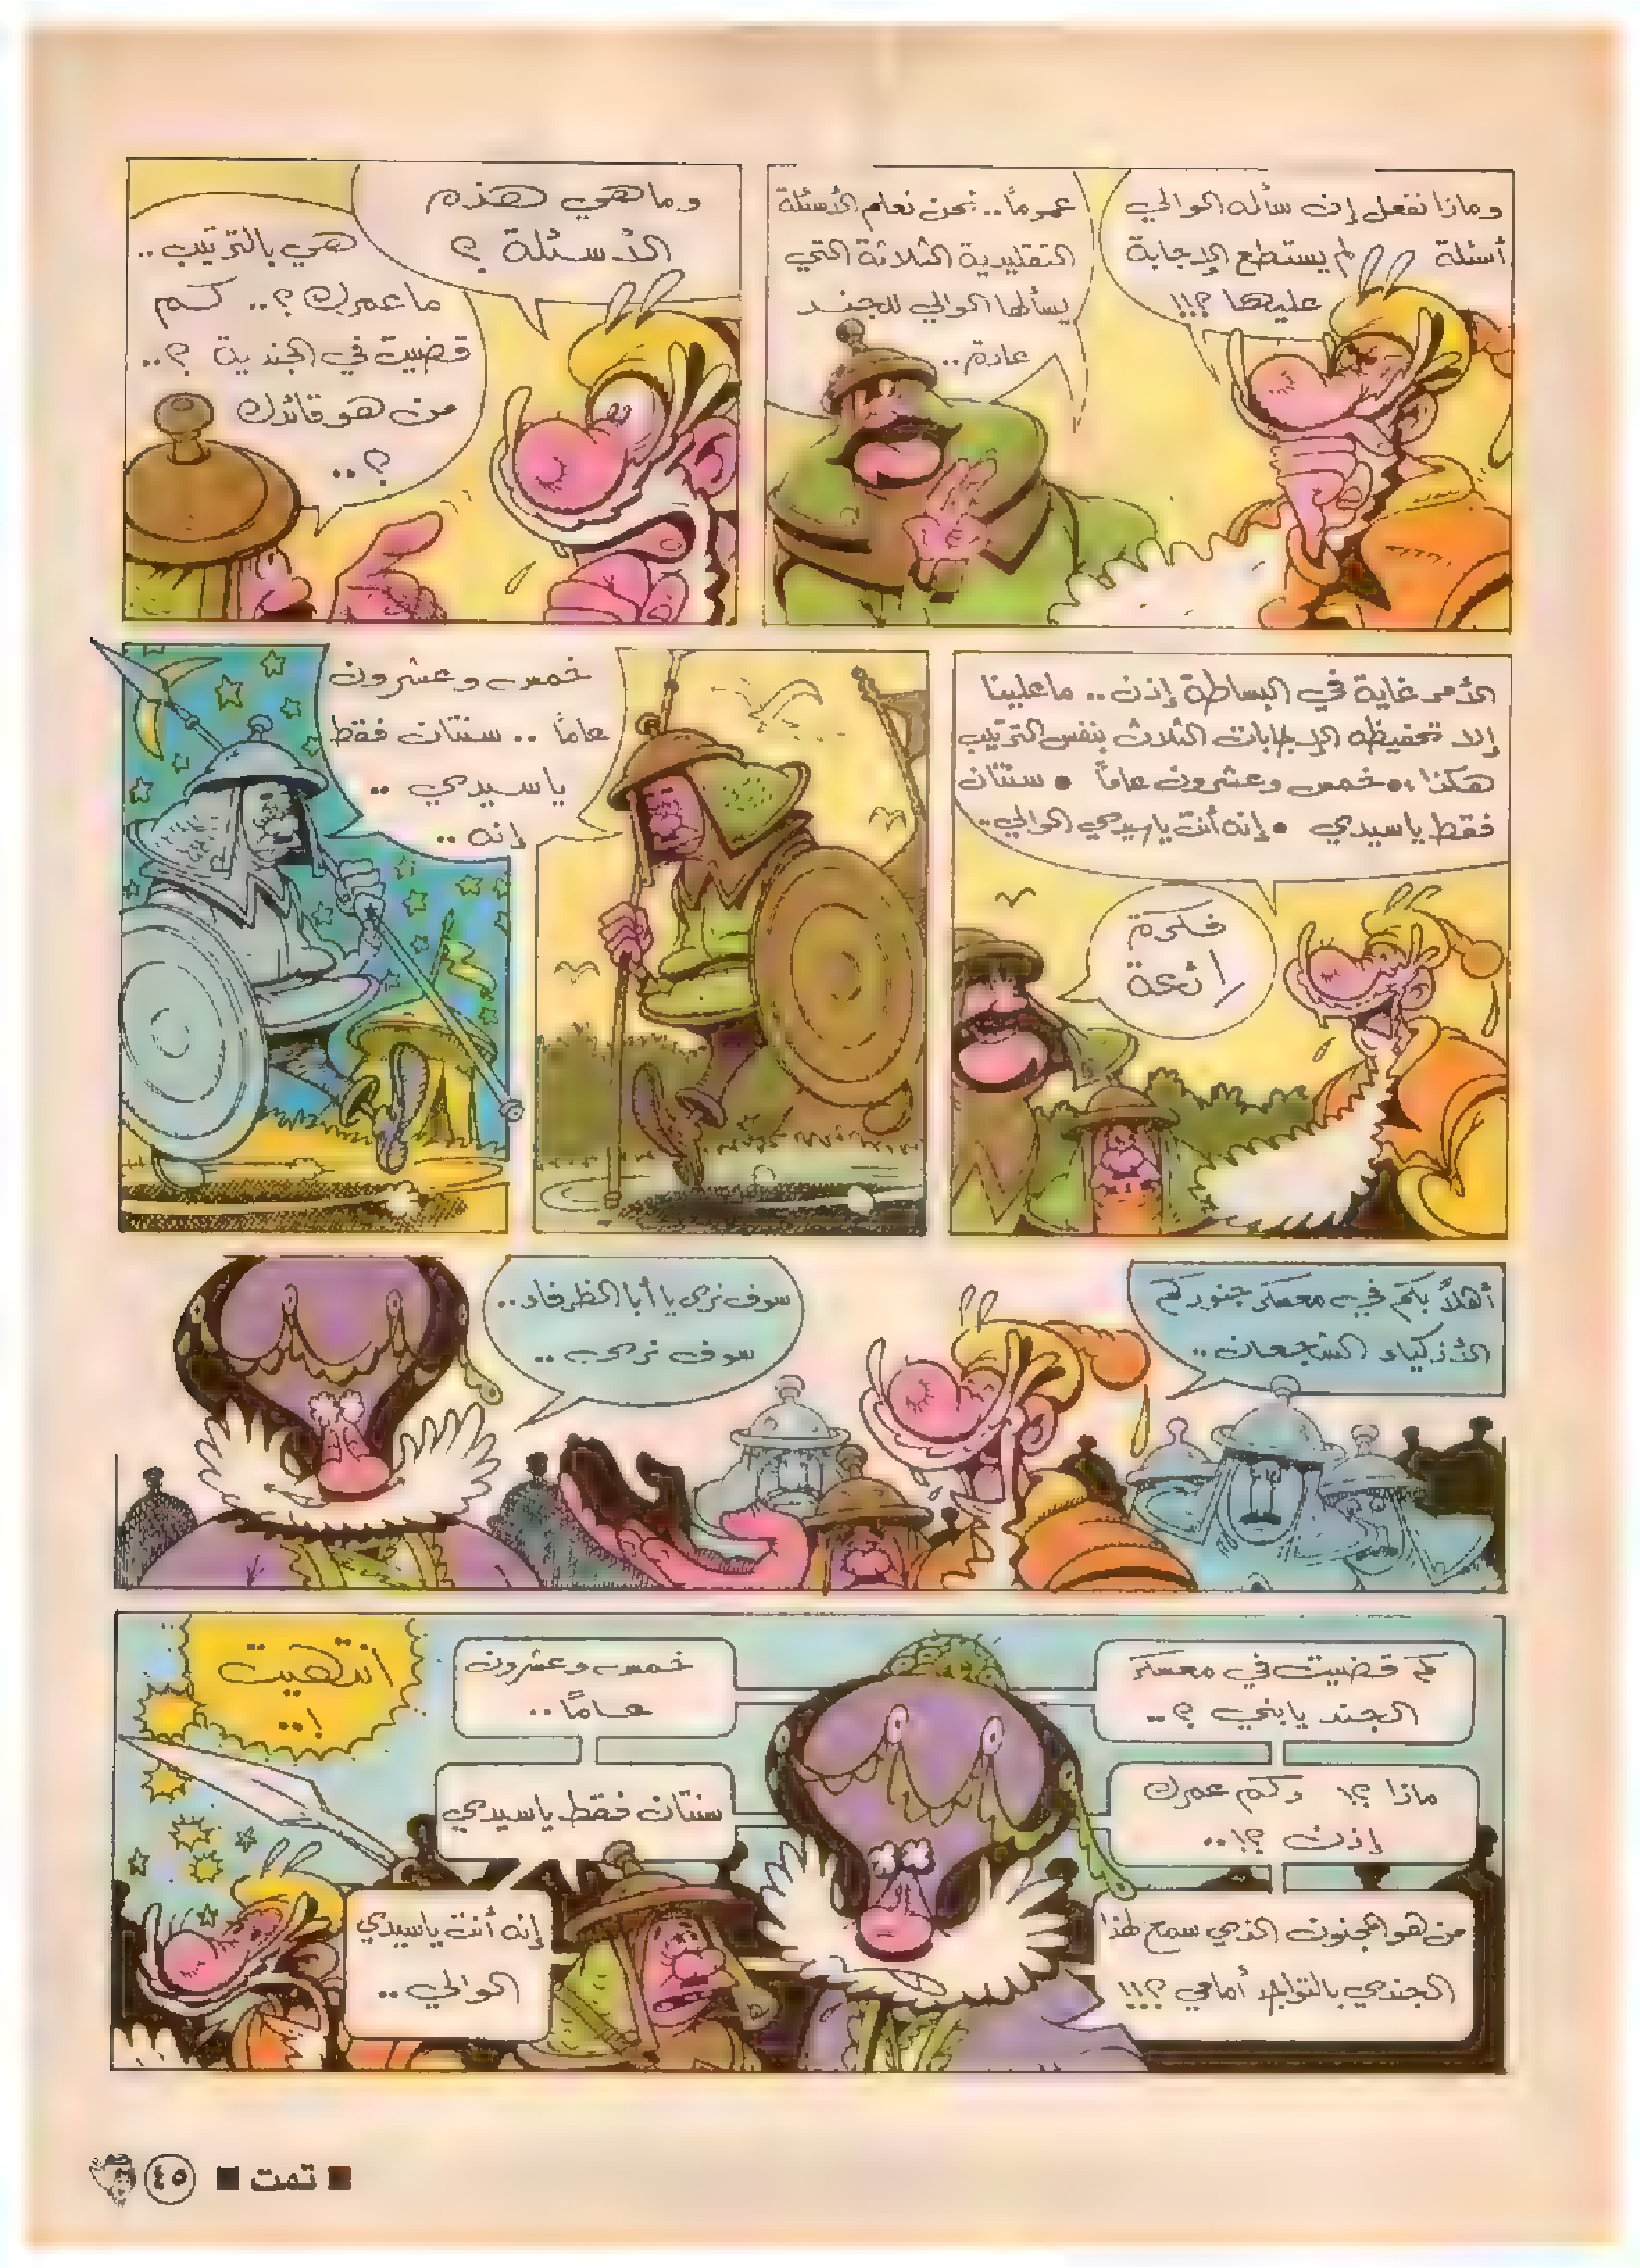 وماذا نفعل إن سأله الوالي
أسئلة لم يستطع الإجابة
عليها ؟!!
عموماً.. نحن نعلم الأسئلة
التقليدية الثلاثة التي
يسألها الوالي للجند
عادة..
وما هي هذه
الأسئلة ؟
هي بالترتيب ..
ما عمرك ؟.. كم
قضيت في الجندية ؟..
من هو قائدك
؟..
الأمر غاية في البساطة إذن .. ما علينا
إلا تحفيظه الإجابات الثلاث بنفس الترتيب
هكذا :• خمس وعشرون عاماً • سنتان
فقط ياسيدي • إنه أنت ياسيدي الوالي..
فكرة
رائعة
خمس وعشرون
عاماً .. سنتان فقط
ياسيدي ..
إنه ..
أهلاً بكم في معسكر جنودكم
الأذكياء الشجعان ..
سوف نرى يا أبا الظرفاء..
سوف نرى ..
كم قضيت في معسكر
الجند يابني ؟..
خمس وعشرون
عاماً..
ماذا ؟! وكم عمرك
إذن ؟!..
سنتان فقط ياسيدي
من هو المجنون الذي سمح لهذا
الجندي بالتواجد أمامي ؟!!
إنه أنت ياسيدي
الوالي ..
انتهيت
!..
■ تمت ■
٤٥